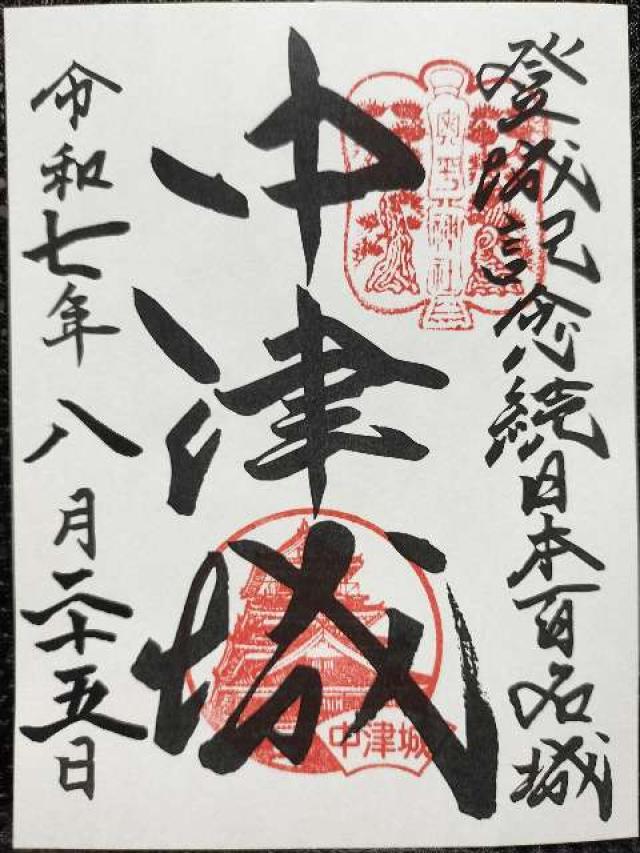 登城記念続日本百名城
奥平神社
中津城
中津城
令和七年八月二十五日